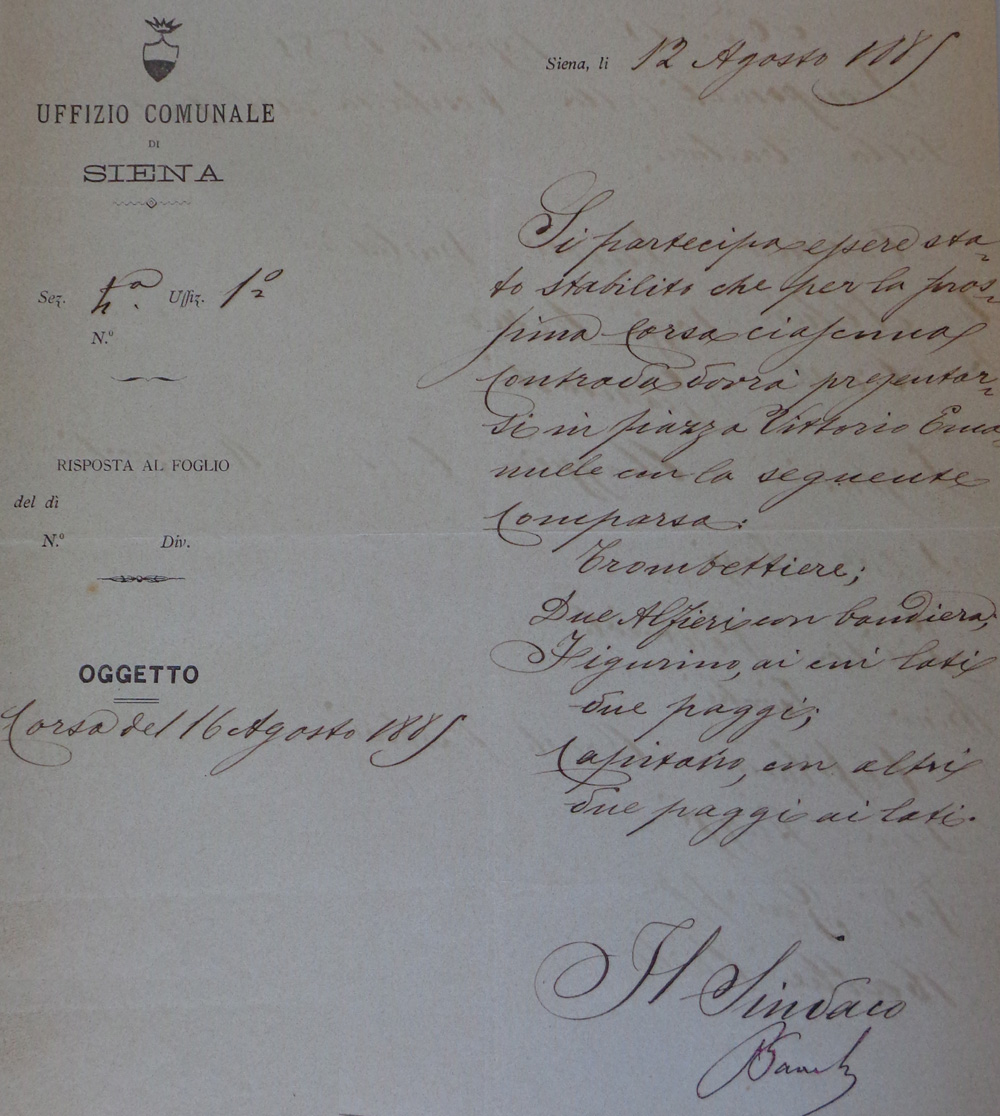 UFFIZIO COMUNALE
DI
SIENA
Siena, lì 12 Agosto 1885
Sez. 4ª. Uffiz. 1º
N.º
RISPOSTA AL FOGLIO
del dì
N.º Div.
OGGETTO
Corsa del 16 Agosto 1885
Si partecipa essere sta-
to stabilito che per la pros-
sima Corsa ciascuna
Contrada dovrà presentar-
si in piazza Vittorio Ema-
nuele con la seguente
Comparsa:
Trombettiere;
Due Alfieri con bandiera;
Figurino, ai cui lati
due paggi;
Capitano, con altri
due paggi ai lati.
Il Sindaco